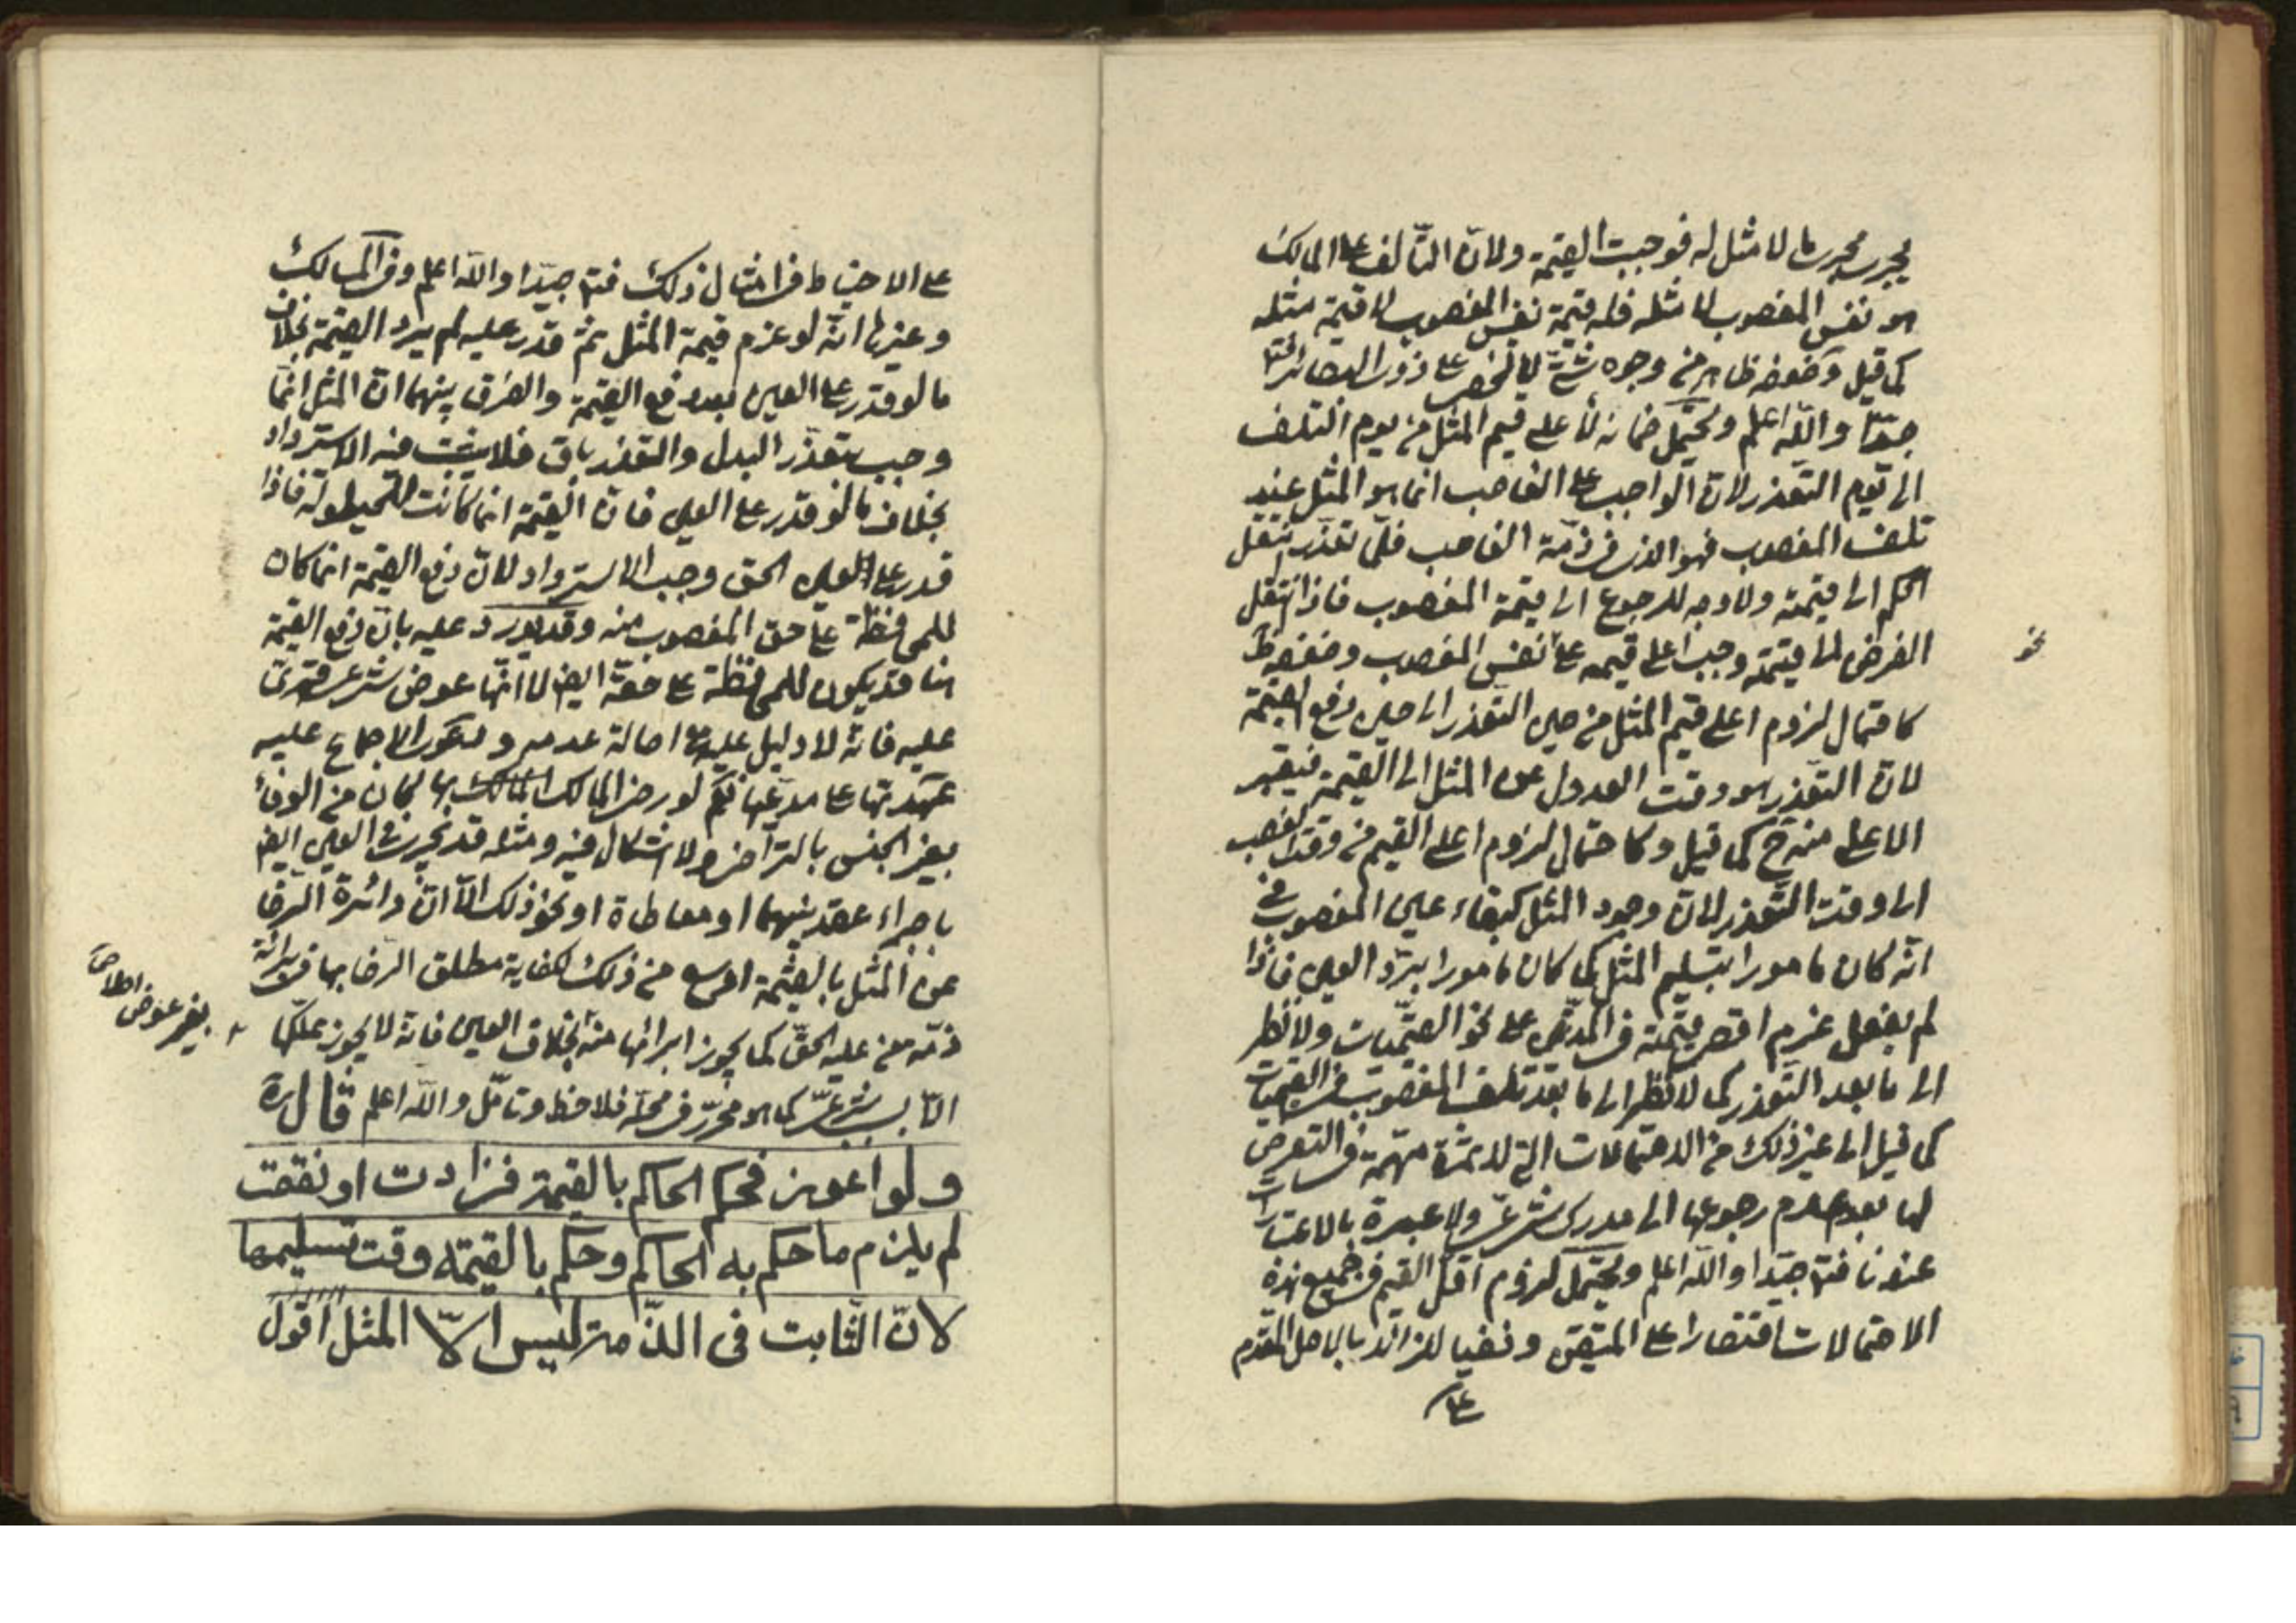 يجرى مجرى ما لا مثل له فوجبت القيمة ولانّ التّالف على المالك
هو نفس المغصوب لا مثله فله قيمة نفس المغصوب لا قيمة مثله
كما قيل وضعفه ظاهر من وجوه شتّى لا تخفى على ذوى البصائر
جدّا واللّه اعلم ويحتمل ضمانه لأعلى قيم المثل من يوم التلف
الى يوم التعذر لانّ الواجب على الغاصب انما هو المثل عند
تلف المغصوب فهو الذى فى ذمّة الغاصب فلمّا تعذّر انتقل
الحكم الى قيمته ولا وجه للرجوع الى قيمة المغصوب فاذا انتقل
الفرض الى قيمته وجب اعلى قيمه على نفس المغصوب وضعفه ظ
كاحتمال لزوم اعلى قيم المثل من حين التعذر الى حين دفع القيمة
لانّ التعذر هو وقت العدول عن المثل الى القيمة فيعتبر
الاعلى منه ح كما قيل وكاحتمال لزوم اعلى القيم من وقت الغصب
الى وقت التّعذر لانّ وجود المثل كبقاء عين المغصوب فى
انّه كان مامورا بتسليم المثل كما كان مامورا بردّ العين فاذا
لم يفعل غرم اقصى قيمته فى المدّتين على نحو القيميّات ولا نظر
الى ما بعد التعذر كما لا نظر الى ما بعد تلف المغصوب فى القيميات
كما قيل الى غير ذلك من الاحتمالات التى لا ثمرة مهمة فى التعرض
لها بعد عدم رجوعها الى مدرك شرعىّ ولا عبرة بالاعتبارات
عندنا فتدبّر جيّدا واللّه اعلم ويحتمل لزوم اقلّ القيم فى جميع هذه
الاحتمالات اقتصارا على المتيقن ونفيا للزائد بالاصل المتقدم
على
نحو
على الاحتياط فى امثال ذلك فتدبر جيّدا واللّه اعلم وفى المسالك
وغيرها انّه لو غرم قيمة المثل ثمّ قدر عليه لم يرد القيمة بخلاف
ما لو قدر على العين بعد دفع القيمة والفرق بينهما انّ المثل انما
وجب بتعذّر البدل والتعذر باق فلا يثبت فيه الاسترداد
بخلاف ما لو قدر على العين فانّ القيمة انما كانت للحيلولة فاذا
قدر على العين الحق وجب الاسترداد لانّ دفع القيمة انما كان
للمحافظة على حق المغصوب منه وقد يورد عليه بانّ دفع القيمة
هنا قد يكون للمحافظة على حقه ايضا لا انّها عوض شرعى قهرىّ
عليه فانّه لا دليل عليه اصالة عدمه ودعوى الاجماع عليه
عهدتها على مدعيها نعم لو رضى المالك المالك بها لكان من الوفاء
بغير الجنس بالتّراضى ولا اشكال فيه ومثله قد يجرى فى العين ايضا
باجراء عقد بينهما او معاطاة او نحو ذلك الّا انّ دائرة الرضا
عن المثل بالقيمة اوسع من ذلك لكفاية مطلق الرضا بها فى برائة
ذمّة من عليه الحقّ كما يجوز ابرائها منه بخلاف العين فانّه لا يجوز تملّكها
الّا بسبب شرعىّ كما هو محرّر فى محلّه فلاحظ وتامّل واللّه اعلم قال ره
ولو اعوز فحكم الحاكم بالقيمة فزادت او نقصت
لم يلزم ما حكم به الحاكم وحكم بالقيمة وقت تسليمها
لانّ الثّابت فى الذّمة ليس الّا المثل اقول
بغير عوض اصلا صح